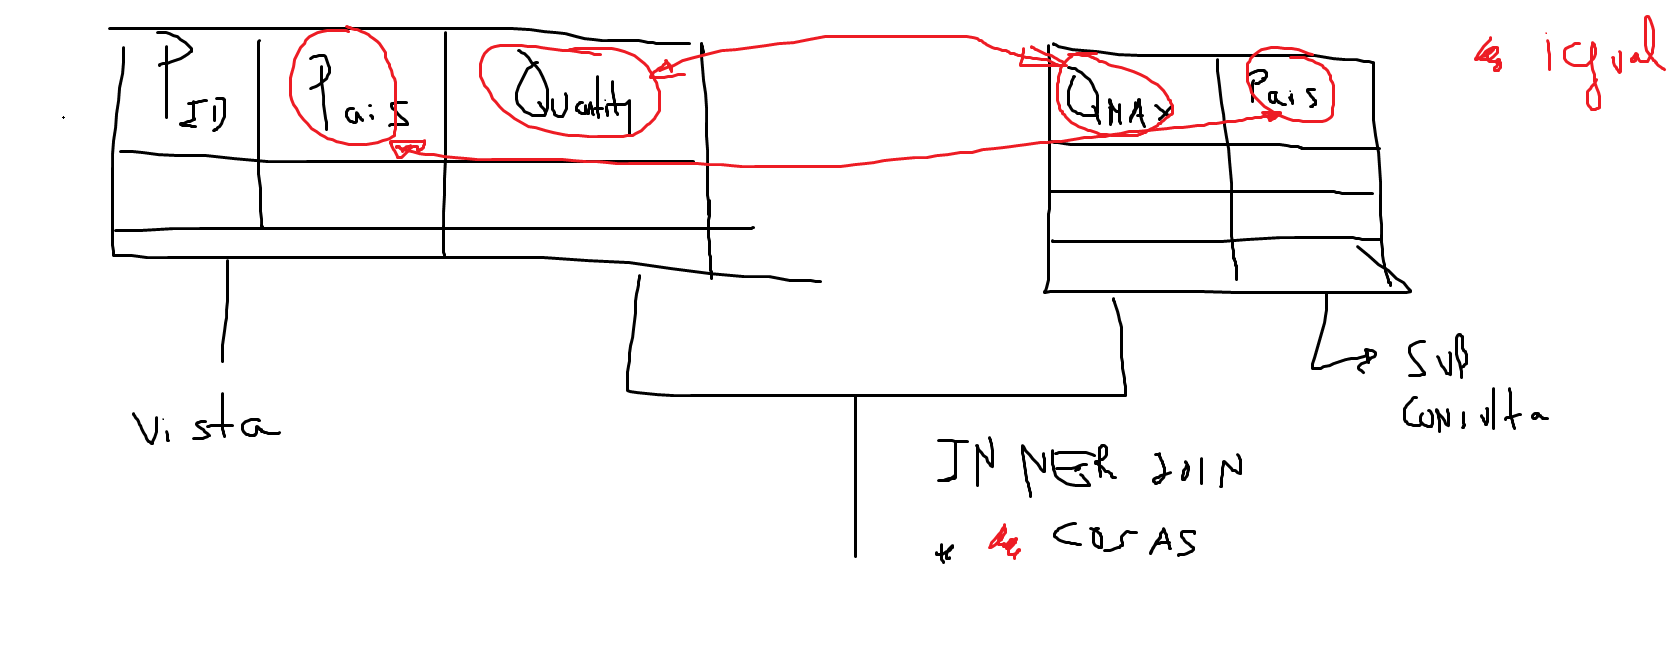 PID Pais Quantity QMAX Pais
igual
Vista
SUB
CONSulta
INNER JOIN
* COSAS